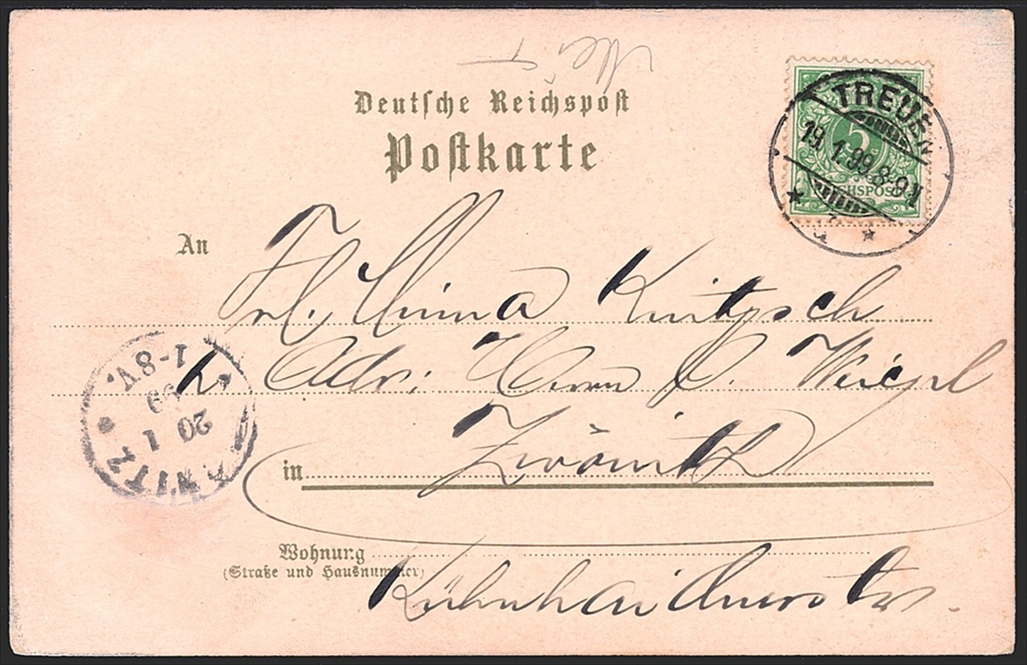 Deutsche Reichspost
Postkarte
TREUEN
19. 1. 99. 8-9 V
5
REICHSPOST
An
Frl. Minna Knitzsch
Adr: Herrn C. Weigel
in Zwönitz
Wohnung
(Straße und Hausnummer)
Kühnhaidnerstr.
1-8V.
99
20 1
NITZ